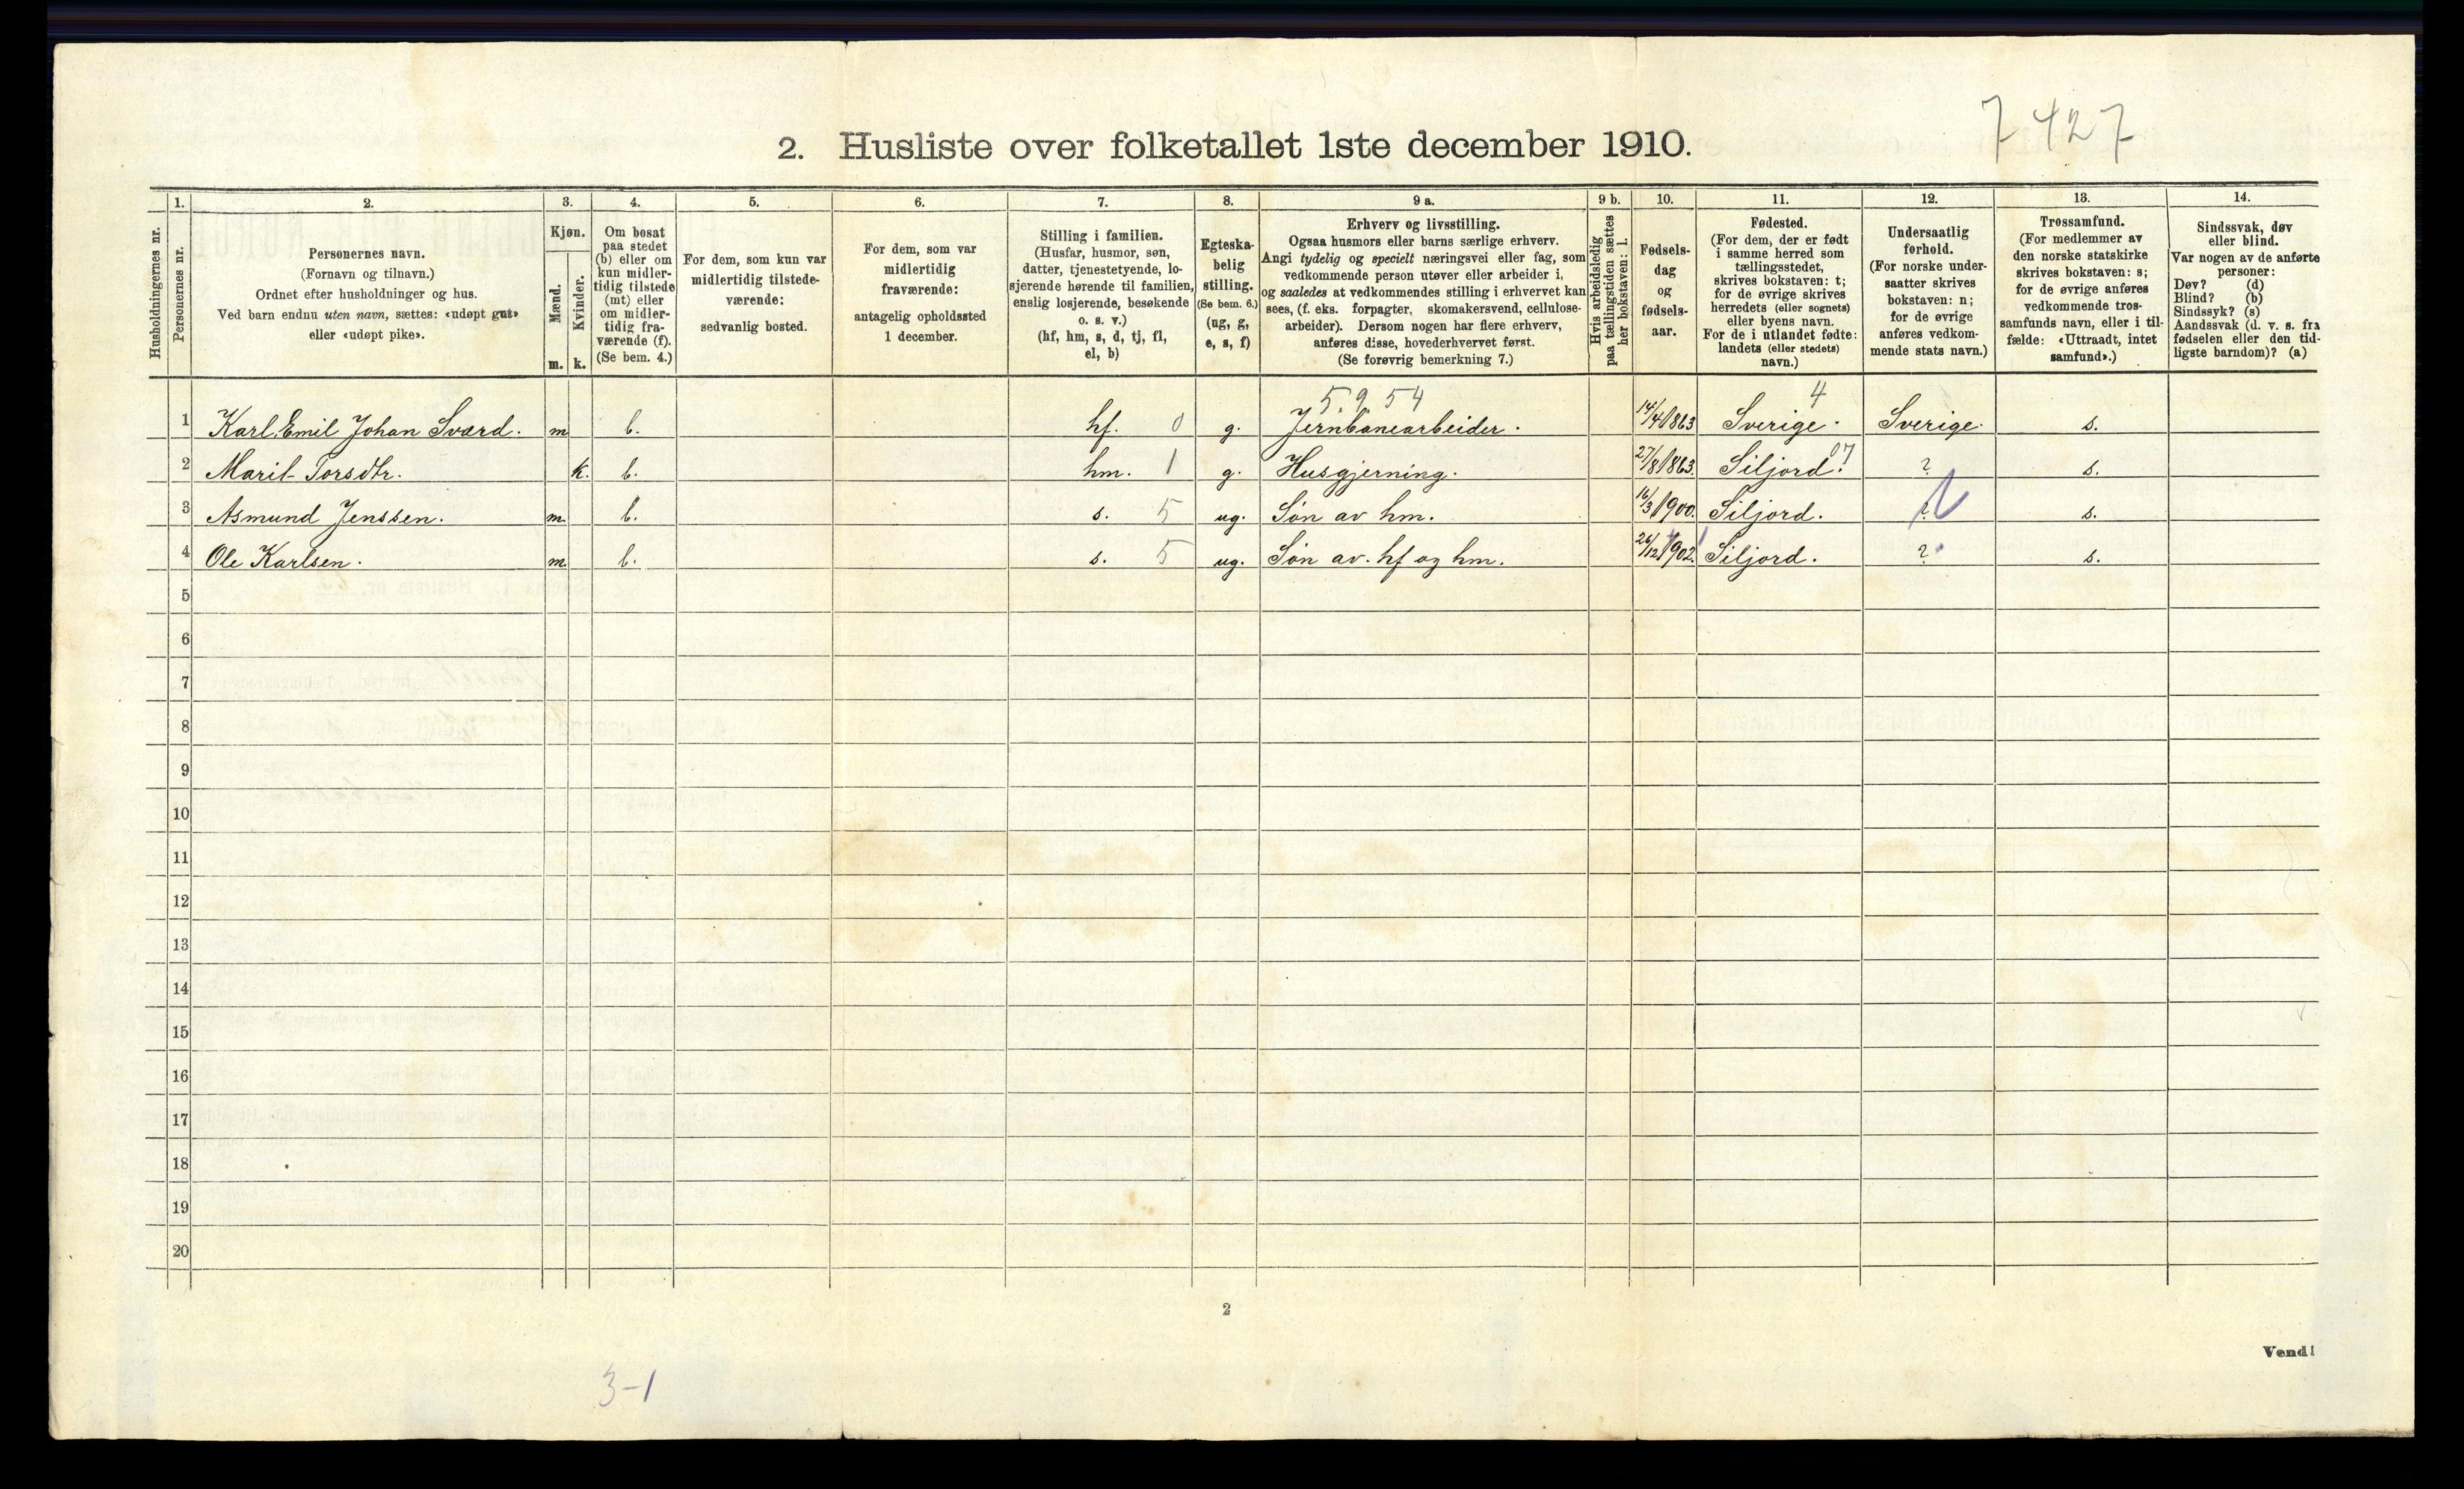 7427
2. Husliste over folketallet 1ste december 1910.
1. 2. 3. 4. 5. 6. 7. 8. 9 a. 9 b. 10. 11. 12. 13. 14.
Husholdningernes nr.
Personernes nr.
Personernes navn.
(Fornavn og tilnavn.)
Ordnet efter husholdninger og hus.
Ved barn endnu uten navn, sættes: «udøpt gut»
eller «udøpt pike».
Kjøn.
Mænd.
Kvinder.
m. k.
Om bosat
paa stedet
(b) eller om
kun midler-
tidig tilstede
(mt) eller
om midler-
tidig fra-
værende (f).
(Se bem. 4.)
For dem, som kun var
midlertidig tilstede-
værende:
sedvanlig bosted.
For dem, som var
midlertidig
fraværende:
antagelig opholdssted
1 december.
Stilling i familien.
(Husfar, husmor, søn,
datter, tjenestetyende, lo-
sjerende hørende til familien,
enslig losjerende, besøkende
o. s. v.)
(hf, hm, s, d, tj, fl,
el, b)
Egteska-
belig
stilling.
(Se bem. 6.)
(ug, g,
e, s, f)
Erhverv og livsstilling.
Ogsaa husmors eller barns særlige erhverv.
Angi tydelig og specielt næringsvei eller fag, som
vedkommende person utøver eller arbeider i,
og saaledes at vedkommendes stilling i erhvervet kan
sees, (f. eks. forpagter, skomakersvend, cellulose-
arbeider). Dersom nogen har flere erhverv,
anføres disse, hovederhvervet først.
(Se forøvrig bemerkning 7.)
Hvis arbeidsledig
paa tællingstiden sættes
her bokstaven: l.
Fødsels-
dag
og
fødsels-
aar.
Fødested.
(For dem, der er født
i samme herred som
tællingsstedet,
skrives bokstaven: t;
for de øvrige skrives
herredets (eller sognets)
eller byens navn.
For de i utlandet fødte:
landets (eller stedets)
navn.)
Undersaatlig
forhold.
(For norske under-
saatter skrives
bokstaven: n;
for de øvrige
anføres vedkom-
mende stats navn.)
Trossamfund.
(For medlemmer av
den norske statskirke
skrives bokstaven: s;
for de øvrige anføres
vedkommende tros-
samfunds navn, eller i til-
fælde: «Uttraadt, intet
samfund».)
Sindssvak, døv
eller blind.
Var nogen av de anførte
personer:
Døv? (d)
Blind? (b)
Sindssyk? (s)
Aandssvak (d. v. s. fra
fødselen eller den tid-
ligste barndom)? (a)
5.9 54 4
1 Karl Emil Johan Sværd. m b. hf. 0 g. Jernbanearbeider. 14/4 1863 Sverige. Sverige. s.
07
2 Marit Torsdtr. k. b. hm. 1 g. Husgjerning. 27/8 1863. Siljord. ? s.
3 Asmund Jenssen. m. b. s. 5 ug. Søn av hm. 16/3 1900. Siljord. ? s.
4 Ole Karlsen. m. b. s. 5 ug. Søn av. hf og hm. 26/12 1902. Siljord. ? s.
5
6
7
8
9
10
11
12
13
14
15
16
17
18
19
20
2
Vend!
3-1